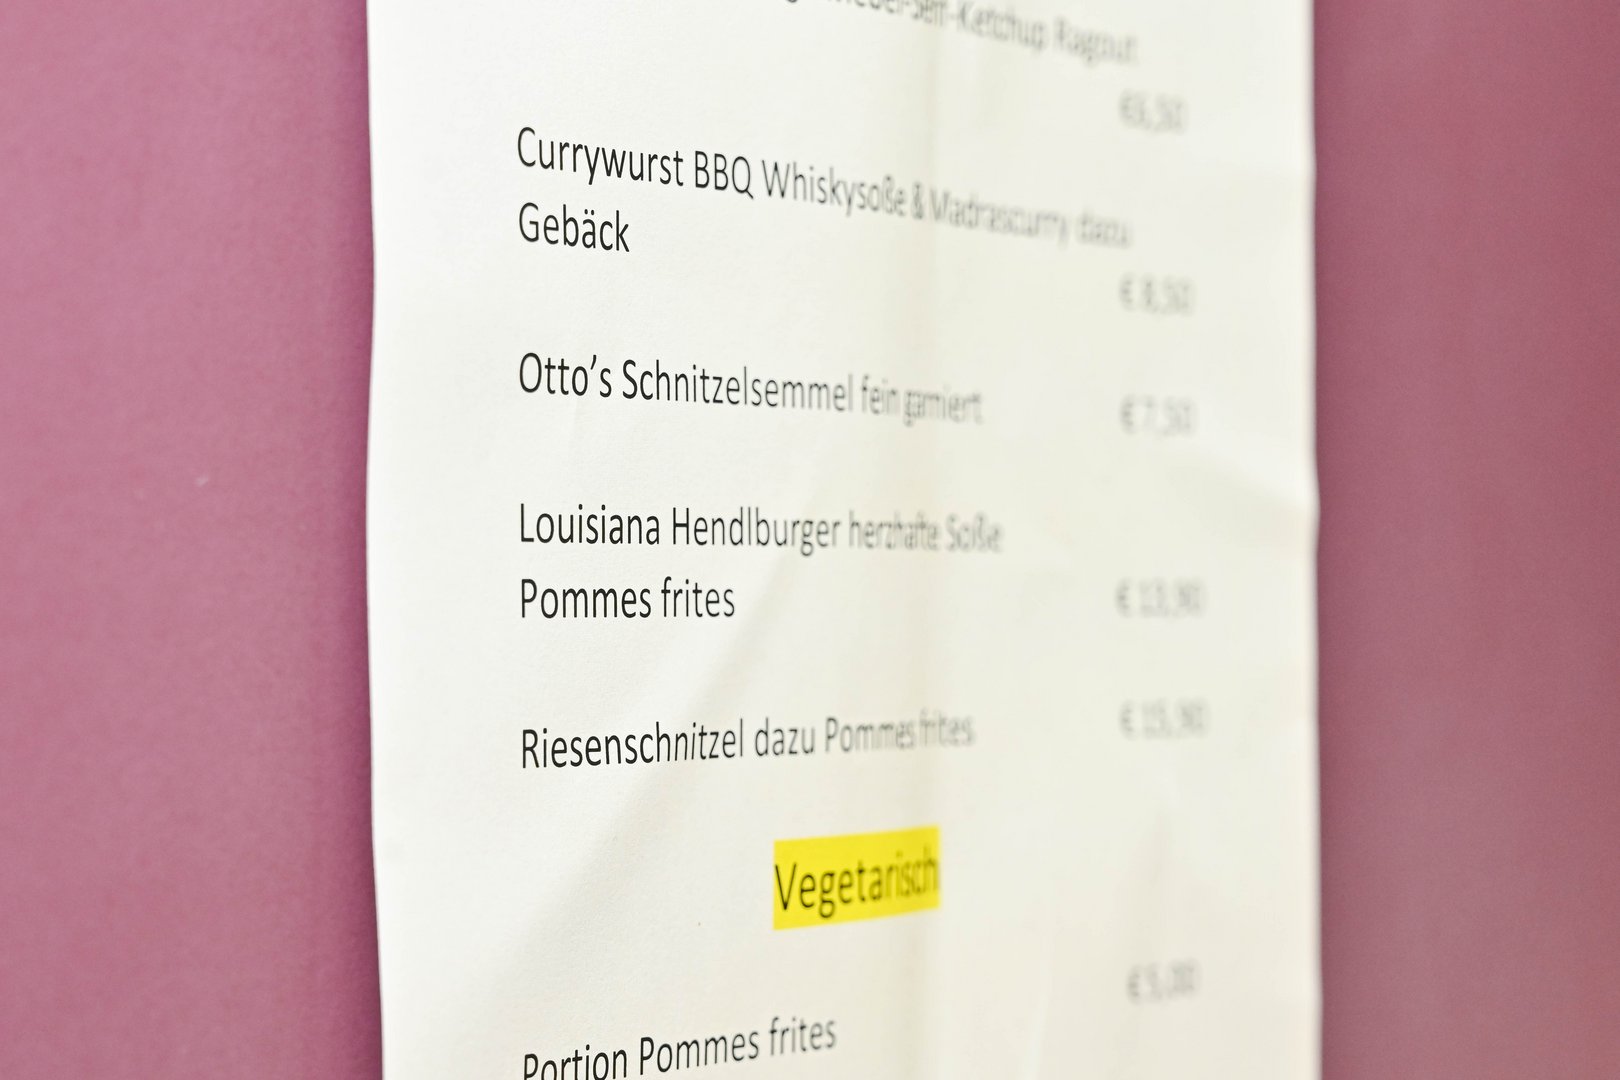 -Ketchup Ragout
€6,50
Currywurst BBQ Whiskysoße & Madrascurry dazu
Gebäck
€ 8,50
Otto’s Schnitzelsemmel fein garniert € 7,50
Louisiana Hendlburger herzhafte Soße
Pommes frites € 13,90
Riesenschnitzel dazu Pommes frites € 15,90
Vegetarisch
€ 5,00
Portion Pommes frites